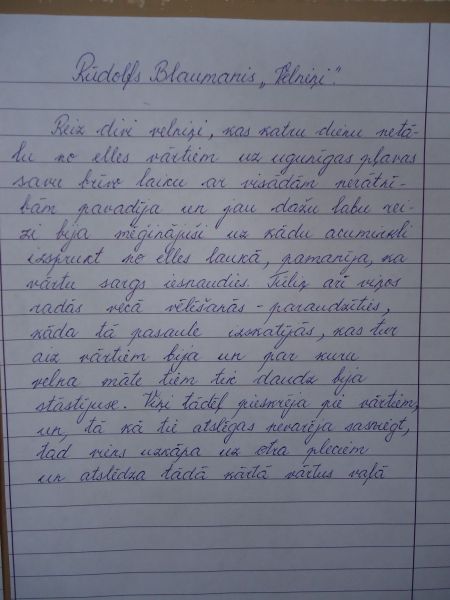 Rūdolfs Blaumanis „Velniņi".
Reiz divi velniņi, kas katru dienu netā-
lu no elles vārtiem uz ugunīgas pļavas
savu brīvo laiku ar visādām nerātnī-
bām pavadīja un jau dažu labu rei-
zi bija mēģinājuši uz kādu acumirkli
izsprukt no elles laukā, pamanīja, ka
vārtu sargs iesnaudies. Tūliņ arī viņos
radās vecā vēlēšanās - paraudzīties,
kāda tā pasaule izskatījās, kas tur
aiz vārtiem bija un par kuru
velna māte tiem tik daudz bija
stāstījuse. Viņi tādēļ pieskrēja pie vārtiem,
un, tā kā tie atslēgas nevarēja sasniegt,
tad viens uzkāpa uz otra pleciem
un atslēdza tādā kārtā vārtus vaļā